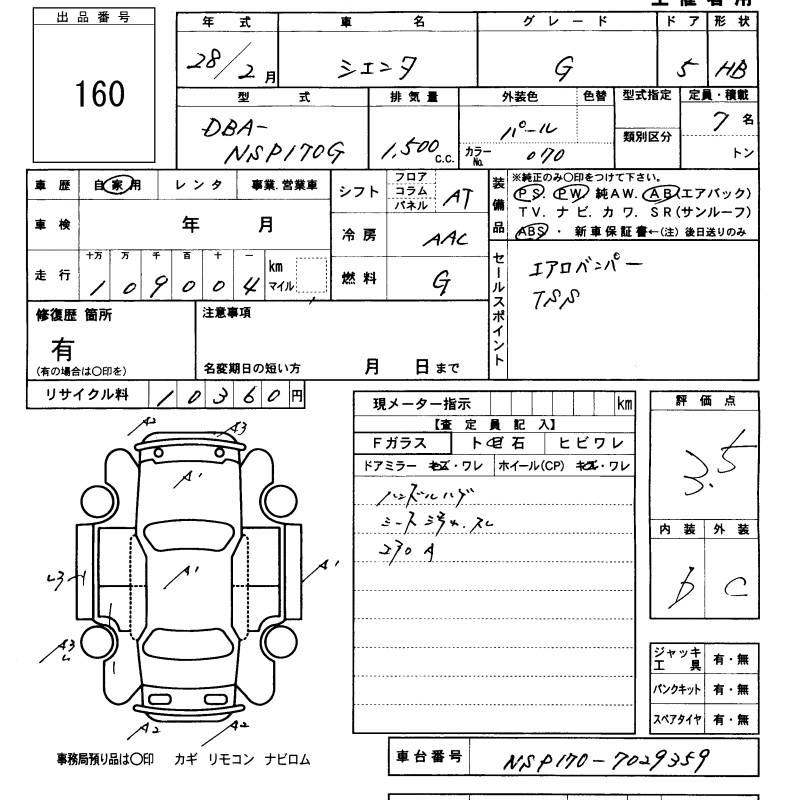 出品番号
160
年式 車名 グレード ドア 形状
28/2月 シエンタ G 5 HB
型式 排気量 外装色 色替 型式指定 定員・積載
DBA-NSP170G 1,500 C.C. パール 7名
カラーNo. 070 類別区分 トン
車歴 自家用 レンタ 事業.営業車
車検 年 月
走行 十万 万 千 百 十 一 km マイル
1 0 9 0 0 4
シフト フロア コラム パネル AT
冷房 AAC
燃料 G
装備品 ※純正のみ〇印をつけて下さい。
PS. PW. 純AW. AB(エアバック)
TV. ナビ. カワ. SR(サンルーフ)
ABS ・ 新車保証書←(注) 後日送りのみ
セールスポイント
エアロバンパー
TSS
修復歴 箇所
有
(有の場合は〇印を)
注意事項
名変期日の短い方 月 日まで
リサイクル料 10360円
現メーター指示 km
【査定員記入】
Fガラス ト ビ 石 ヒビワレ
ドアミラー キズ・ワレ ホイール(CP) キズ・ワレ
ハンドルハゲ
シート汚れ.スレ
エアロ A
評価点
3.5
内装 外装
b C
A2 A3
A'
A'
A'
A3
A2 A2
ジャッキ工具 有・無
パンクキット 有・無
スペアタイヤ 有・無
事務局預り品は〇印 カギ リモコン ナビロム
車台番号 NSP170-7029359